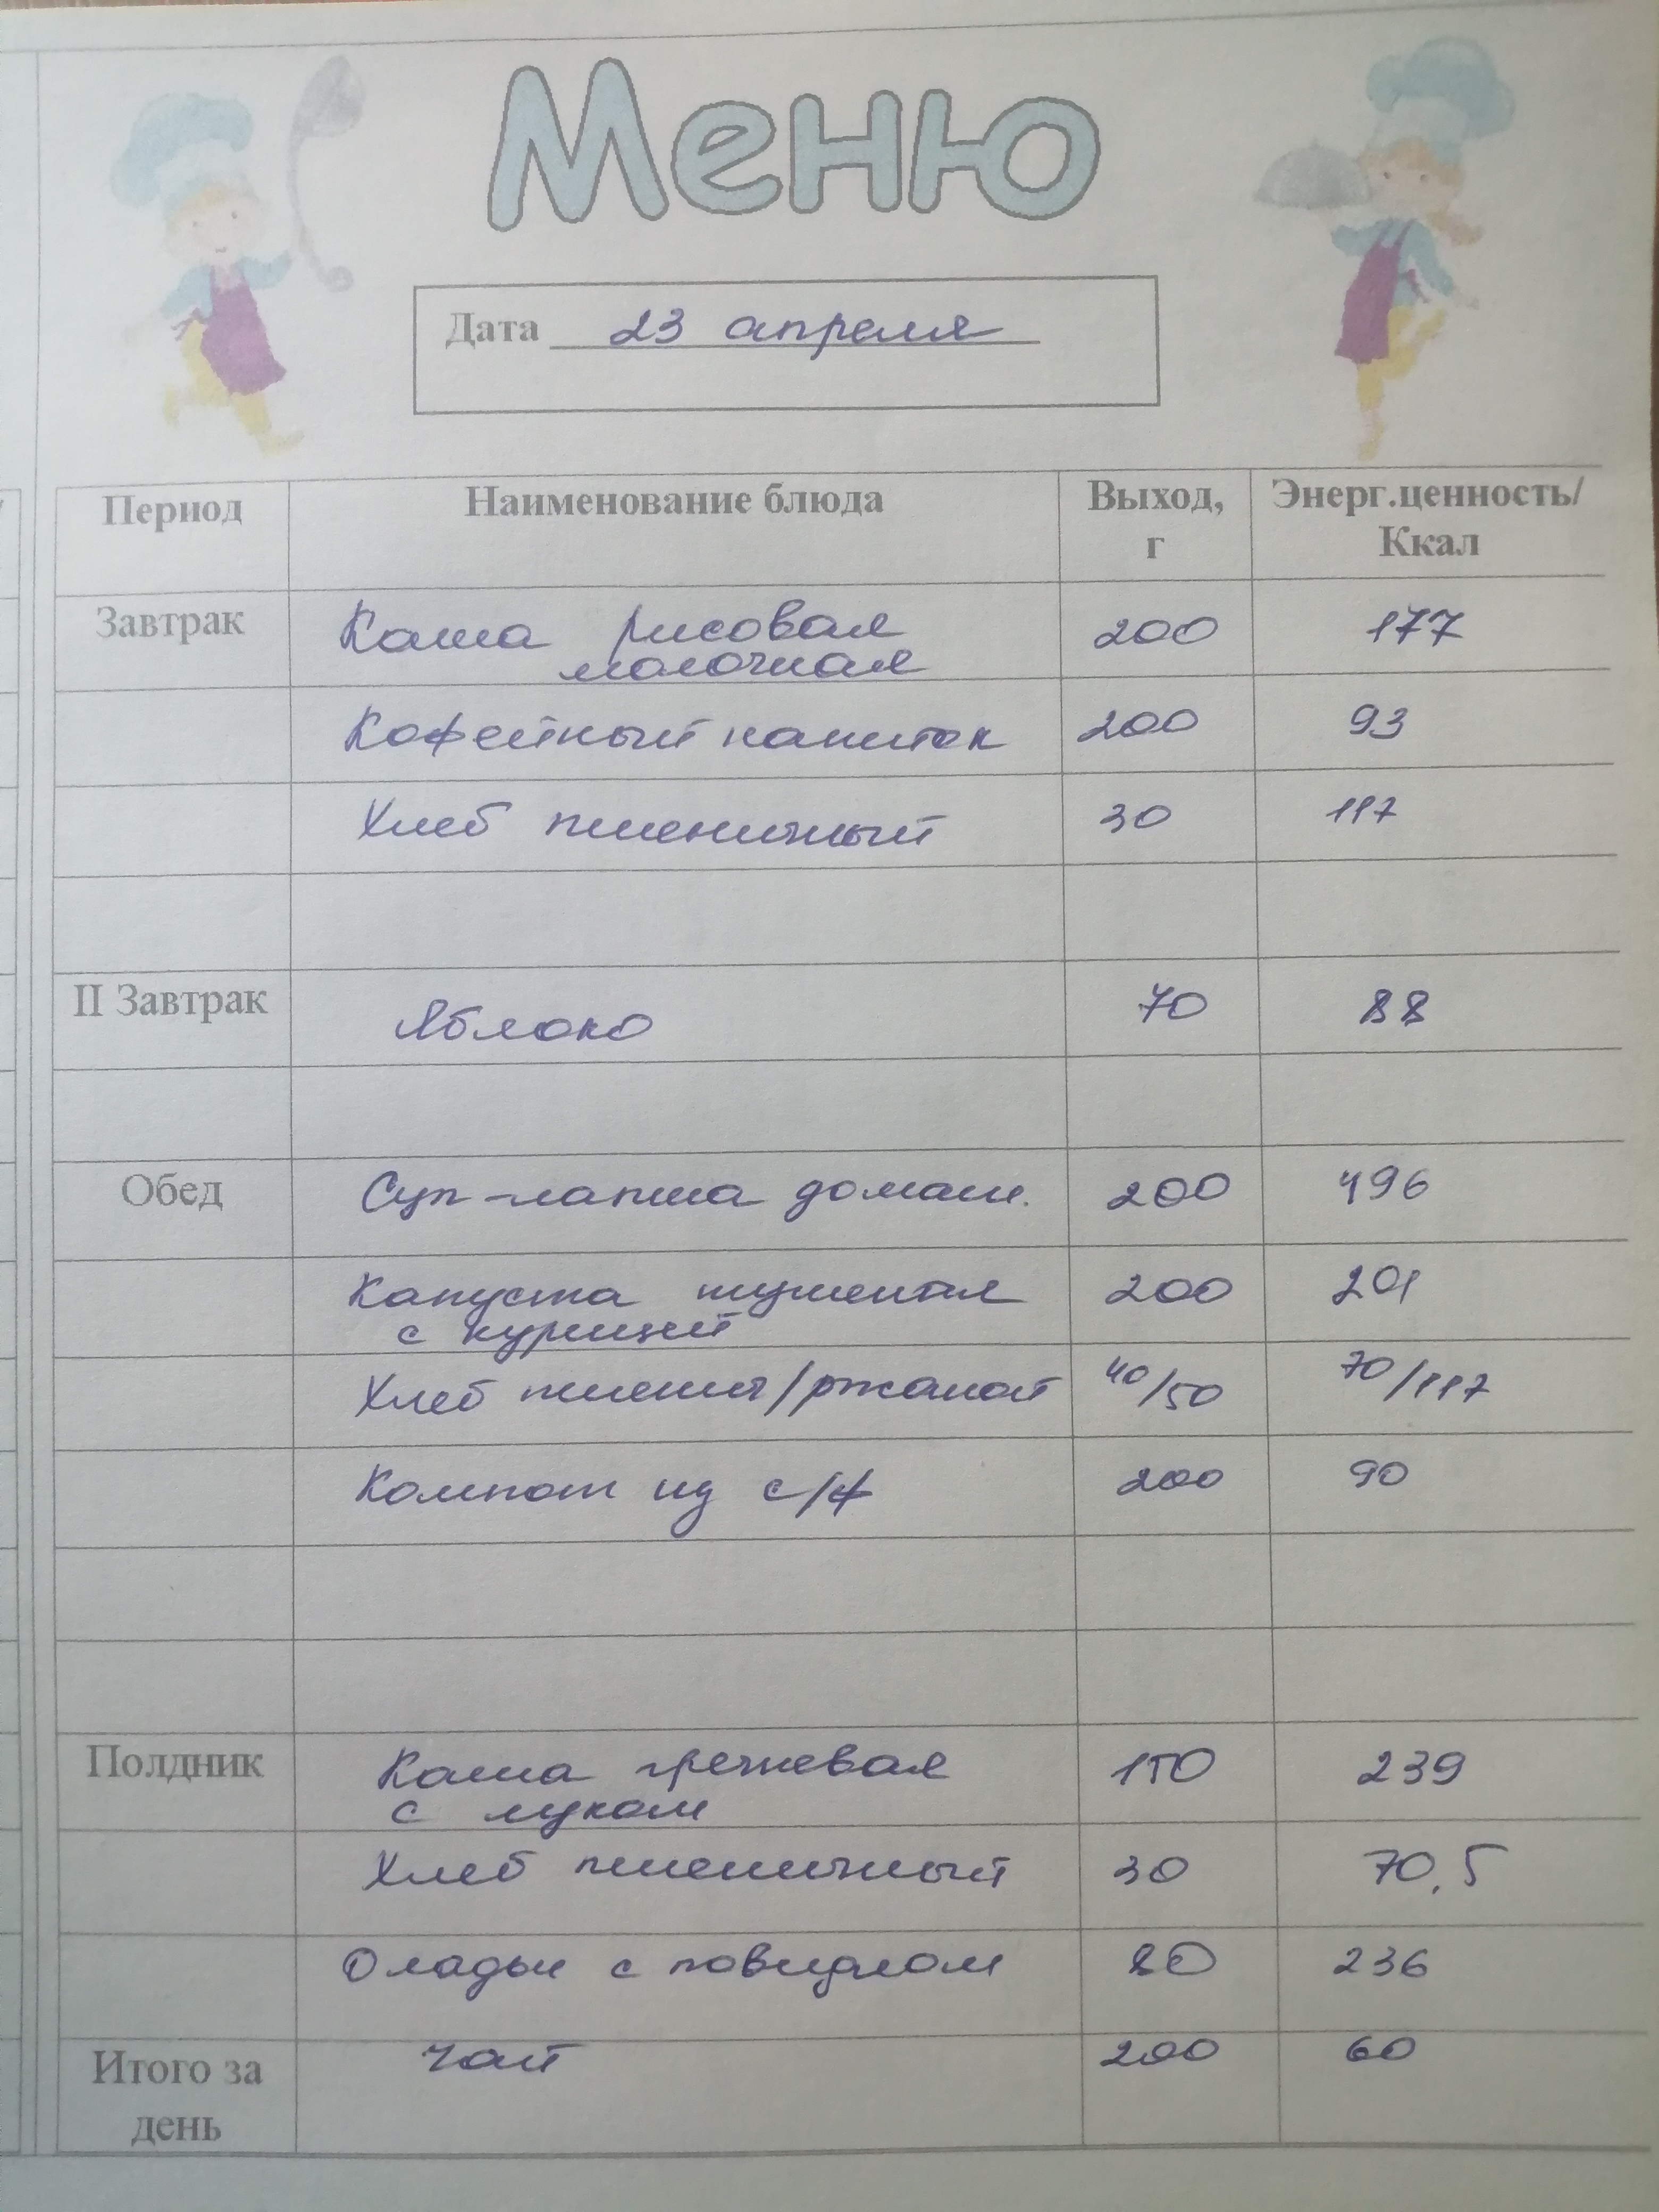 Меню
Дата 23 апреля
Период Наименование блюда Выход, г Энерг.ценность/ Ккал
Завтрак Каша рисовая 200 177
молочная
Кофейный напиток 200 93
Хлеб пшеничный 30 117
II Завтрак Яблоко 70 88
Обед Суп-лапша домаш. 200 496
Капуста тушеная 200 201
с курицей
Хлеб пшенич/ржаной 40/50 70/117
Компот из с/ф 200 90
Полдник Каша гречневая 150 239
с луком
Хлеб пшеничный 30 70,5
Оладьи с повидлом 80 236
Итого за чай 200 60
день